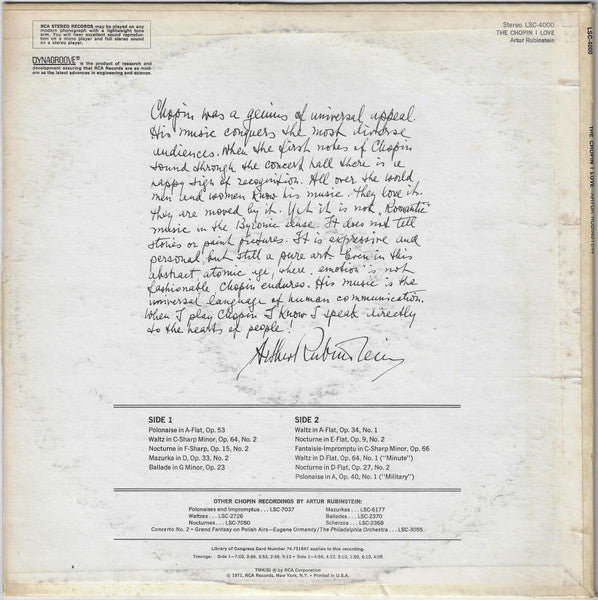 RCA STEREO RECORDS may be played on any
modern phonograph with a lightweight tone
arm. You will hear excellent sound reproduc-
tion on a mono player and full stereo sound
on a stereo player.
DYNAGROOVE® is the product of research and
development assuring that RCA Records are as mod-
ern as the latest advances in engineering and science.
Stereo LSC-4000
THE CHOPIN I LOVE
Artur Rubinstein
LSC-4000
THE CHOPIN I LOVE ARTUR RUBINSTEIN
Chopin was a genius of universal appeal.
His music conquers the most diverse
audiences. When the first notes of Chopin
sound through the concert hall there is a
happy sigh of recognition. All over the world
men and women know his music. They love it.
They are moved by it. Yet it is not "Romantic"
music in the Byronic sense. It does not tell
stories or paint pictures. It is expressive and
personal, but still a pure art. Even in this
abstract atomic age, where emotion is not
fashionable, Chopin endures. His music is the
universal language of human communication.
When I play Chopin I know I speak directly
to the hearts of people!
Arthur Rubinstein
SIDE 1
Polonaise in A-Flat, Op. 53
Waltz in C-Sharp Minor, Op. 64, No. 2
Nocturne in F-Sharp, Op. 15, No. 2
Mazurka in D, Op. 33, No. 2
Ballade in G Minor, Op. 23
SIDE 2
Waltz in A-Flat, Op. 34, No. 1
Nocturne in E-Flat, Op. 9, No. 2
Fantaisie-Impromptu in C-Sharp Minor, Op. 66
Waltz in D-Flat, Op. 64, No. 1 ("Minute")
Nocturne in D-Flat, Op. 27, No. 2
Polonaise in A, Op. 40, No. 1 ("Military")
OTHER CHOPIN RECORDINGS BY ARTUR RUBINSTEIN:
Polonaises and Impromptus . . . LSC-7037
Waltzes . . . LSC-2726
Nocturnes . . . LSC-7050
Mazurkas . . . LSC-6177
Ballades . . . LSC-2370
Scherzos . . . LSC-2368
Concerto No. 2 • Grand Fantasy on Polish Airs—Eugene Ormandy/The Philadelphia Orchestra . . . LSC-3055
Library of Congress Card Number 74-751647 applies to this recording.
Timings: Side 1—7:03, 3:45, 3:53, 2:45, 9:13 • Side 2—4:56, 4:27, 5:10, 1:50, 6:10, 4:05
TMK(S) ® by RCA Corporation
© 1971, RCA Records, New York, N.Y. • Printed in U.S.A.